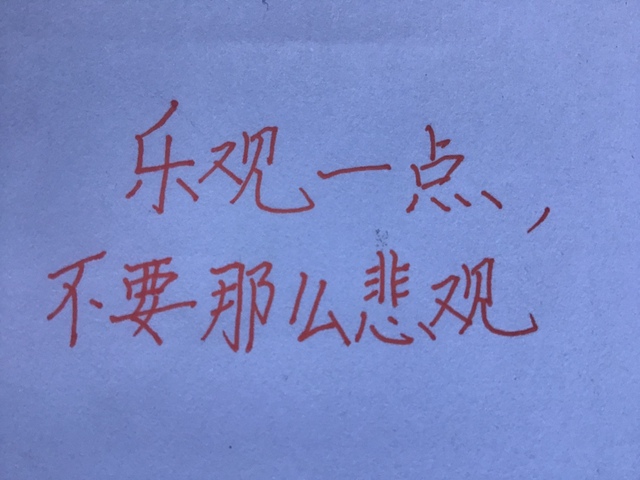 乐观一点，
不要那么悲观